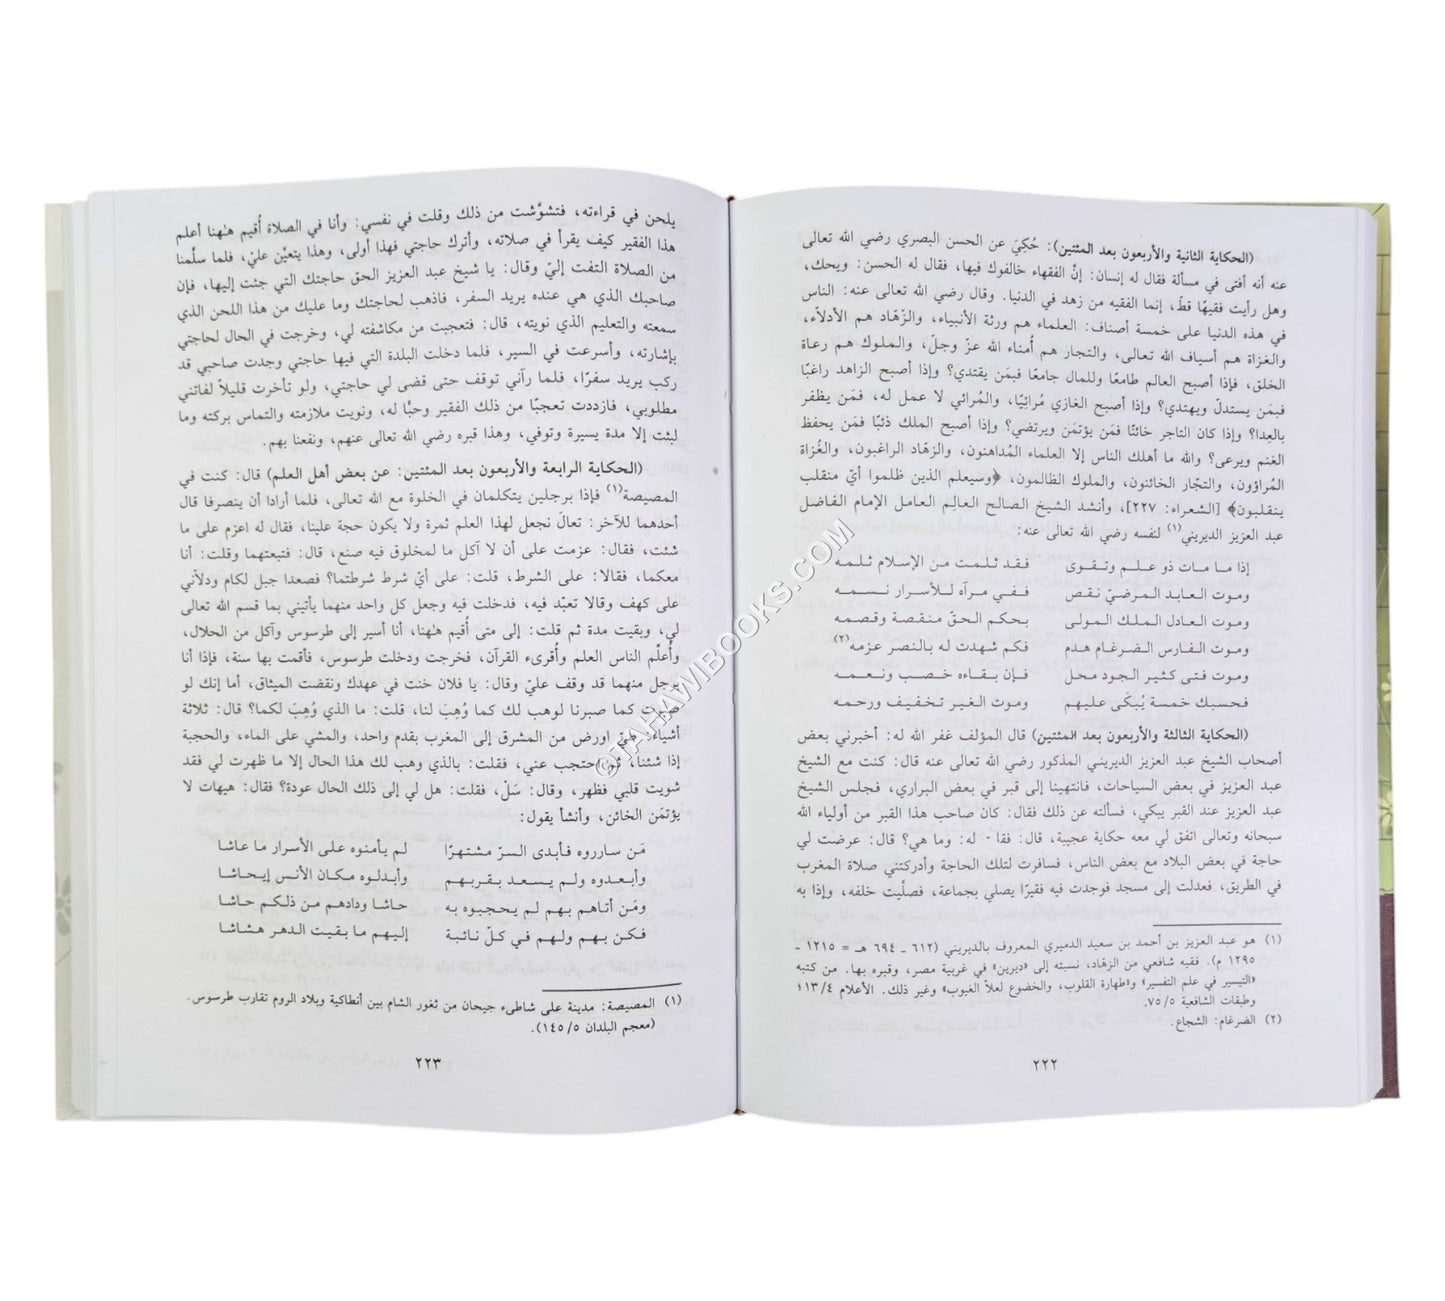 (الحكاية الثانية والأربعون بعد المئتين): حُكِيَ عن الحسن البصري رضي الله تعالى
عنه أنه أفتى في مسألة فقال له إنسان: إنَّ الفقهاء خالفوك فيها، فقال له الحسن: ويحك،
وهل رأيت فقيهًا قطّ، إنما الفقيه من زهد في الدنيا. وقال رضي الله تعالى عنه: الناس
في هذه الدنيا على خمسة أصناف: العلماء هم ورثة الأنبياء، والزهّاد هم الأدلاّء،
والغزاة هم أسياف الله تعالى، والتجار هم أُمناء الله عزّ وجلّ، والملوك هم رعاة
الخلق، فإذا أصبح العالم طامعًا وللمال جامعًا فبمَن يقتدي؟ وإذا أصبح الزاهد راغبًا
فبمَن يستدلّ ويهتدي؟ وإذا أصبح الغازي مُرائيًا، والمُرائي لا عمل له، فمَن يظفر
بالعِدا؟ وإذا كان التاجر خائنًا فمَن يؤتمَن ويرتضي؟ وإذا أصبح الملك ذئبًا فمَن يحفظ
الغنم ويرعى؟ والله ما أهلك الناس إلا العلماء المُداهنون، والزهّاد الراغبون، والغُزاة
المُراؤون، والتجّار الخائنون، والملوك الظالمون، ﴿وسيعلم الذين ظلموا أيّ منقلب
ينقلبون﴾ [الشعراء: ٢٢٧]، وأنشد الشيخ الصالح العالِم العامل الإمام الفاضل
عبد العزيز الديريني(١) لنفسه رضي الله تعالى عنه:
إذا ما مات ذو علم وتقوى فقد ثلمت من الإسلام ثلمه
وموت العابد المرضيّ نقص ففي مرآه للأسرار نسمه
وموت العادل الملك المولى بحكم الحقّ منقصة وقصمه
وموت الفارس الضرغام هدم فكم شهدت له بالنصر عزمه(٢)
وموت فتى كثير الجود محل فإن بقاءه خصب ونعمه
فحسبك خمسة يُبكَى عليهم وموت الغير تخفيف ورحمه
(الحكاية الثالثة والأربعون بعد المئتين) قال المؤلف غفر الله له: أخبرني بعض
أصحاب الشيخ عبد العزيز الديريني المذكور رضي الله تعالى عنه قال: كنت مع الشيخ
عبد العزيز في بعض السياحات، فانتهينا إلى قبر في بعض البراري، فجلس الشيخ
عبد العزيز عند القبر يبكي، فسألته عن ذلك فقال: كان صاحب هذا القبر من أولياء الله
سبحانه وتعالى اتفق لي معه حكاية عجيبة، قال: فقا - له: وما هي؟ قال: عرضت لي
حاجة في بعض البلاد مع بعض الناس، فسافرت لتلك الحاجة وأدركتني صلاة المغرب
في الطريق، فعدلت إلى مسجد فوجدت فيه فقيرًا يصلي بجماعة، فصلَّيت خلفه، وإذا به
(١) هو عبد العزيز بن أحمد بن سعيد الدميري المعروف بالديريني (٦١٢ ـ ٦٩٤ هـ = ١٢١٥ ـ
١٢٩٥ م). فقيه شافعي من الزهّاد، نسبته إلى «ديرين» في غربية مصر، وقبره بها. من كتبه
«التيسير في علم التفسير» و«طهارة القلوب، والخضوع لعلاّ الغيوب» وغير ذلك. الأعلام ١٣/٤؛
وطبقات الشافعية ٧٥/٥.
(٢) الضرغام: الشجاع.
٢٢٢
يلحن في قراءته، فتشوَّشت من ذلك وقلت في نفسي: وأنا في الصلاة أُقيم هٰهنا أعلم
هذا الفقير كيف يقرأ في صلاته، وأترك حاجتي فهذا أولى، وهذا يتعيَّن عليّ، فلما سلَّمنا
من الصلاة التفت إليّ وقال: يا شيخ عبد العزيز الحق حاجتك التي جئت إليها، فإن
صاحبك الذي هي عنده يريد السفر، فاذهب لحاجتك وما عليك من هذا اللحن الذي
سمعته والتعليم الذي نويته، قال: فتعجبت من مكاشفته لي، وخرجت في الحال لحاجتي
بإشارته، وأسرعت في السير، فلما دخلت البلدة التي فيها حاجتي وجدت صاحبي قد
ركب يريد سفرًا، فلما رآني توقف حتى قضى لي حاجتي، ولو تأخرت قليلاً لفاتني
مطلوبي، فازددت تعجبًا من ذلك الفقير وحبًّا له، ونويت ملازمته والتماس بركته وما
لبثت إلا مدة يسيرة وتوفي، وهذا قبره رضي الله تعالى عنهم، ونفعنا بهم.
(الحكاية الرابعة والأربعون بعد المئتين: عن بعض أهل العلم) قال: كنت في
المصيصة(١) فإذا برجلين يتكلمان في الخلوة مع الله تعالى، فلما أرادا أن ينصرفا قال
أحدهما للآخر: تعالَ نجعل لهذا العلم ثمرة ولا يكون حجة علينا، فقال له اعزم على ما
شئت، فقال: عزمت على أن لا آكل ما لمخلوق فيه صنع، قال: فتبعتهما وقلت: أنا
معكما، فقالا: على الشرط، قلت: على أيّ شرط شرطتما؟ فصعدا جبل لكام ودلاّني
على كهف وقالا تعبّد فيه، فدخلت فيه وجعل كل واحد منهما يأتيني بما قسم الله تعالى
لي، وبقيت مدة ثم قلت: إلى متى أُقيم هٰهنا، أنا أسير إلى طرسوس وآكل من الحلال،
وأُعلّم الناس العلم وأُقرىء القرآن، فخرجت ودخلت طرسوس، فأقمت بها سنة، فإذا أنا
برجل منهما قد وقف عليّ وقال: يا فلان خنت في عهدك ونقضت الميثاق، أما إنك لو
صبرت كما صبرنا لوهب لك كما وُهِبَ لنا، قلت: ما الذي وُهِبَ لكما؟ قال: ثلاثة
أشياء: طيّ اورض من المشرق إلى المغرب بقدم واحد، والمشي على الماء، والحجبة
إذا شئنا، ثم احتجب عني، فقلت: بالذي وهب لك هذا الحال إلا ما ظهرت لي فقد
شويت قلبي فظهر، وقال: سَلْ، فقلت: هل لي إلى ذلك الحال عودة؟ فقال: هيهات لا
يؤتمَن الخائن، وأنشأ يقول:
مَن سارروه فأبدى السرّ مشتهرًا لم يأمنوه على الأسرار ما عاشا
وأبعدوه ولم يسعد بقربهم وأبدلوه مكان الأنس إيحاشا
ومَن أتاهم بهم لم يحجبوه به حاشا ودادهم من ذلكم حاشا
فكن بهم ولهم في كلّ نائبة إليهم ما بقيت الدهر هشاشا
(١) المصيصة: مدينة على شاطىء جيحان من ثغور الشام بين أنطاكية وبلاد الروم تقارب طرسوس.
(معجم البلدان ١٤٥/٥).
٢٢٣
©TAHAWIBOOKS.COM